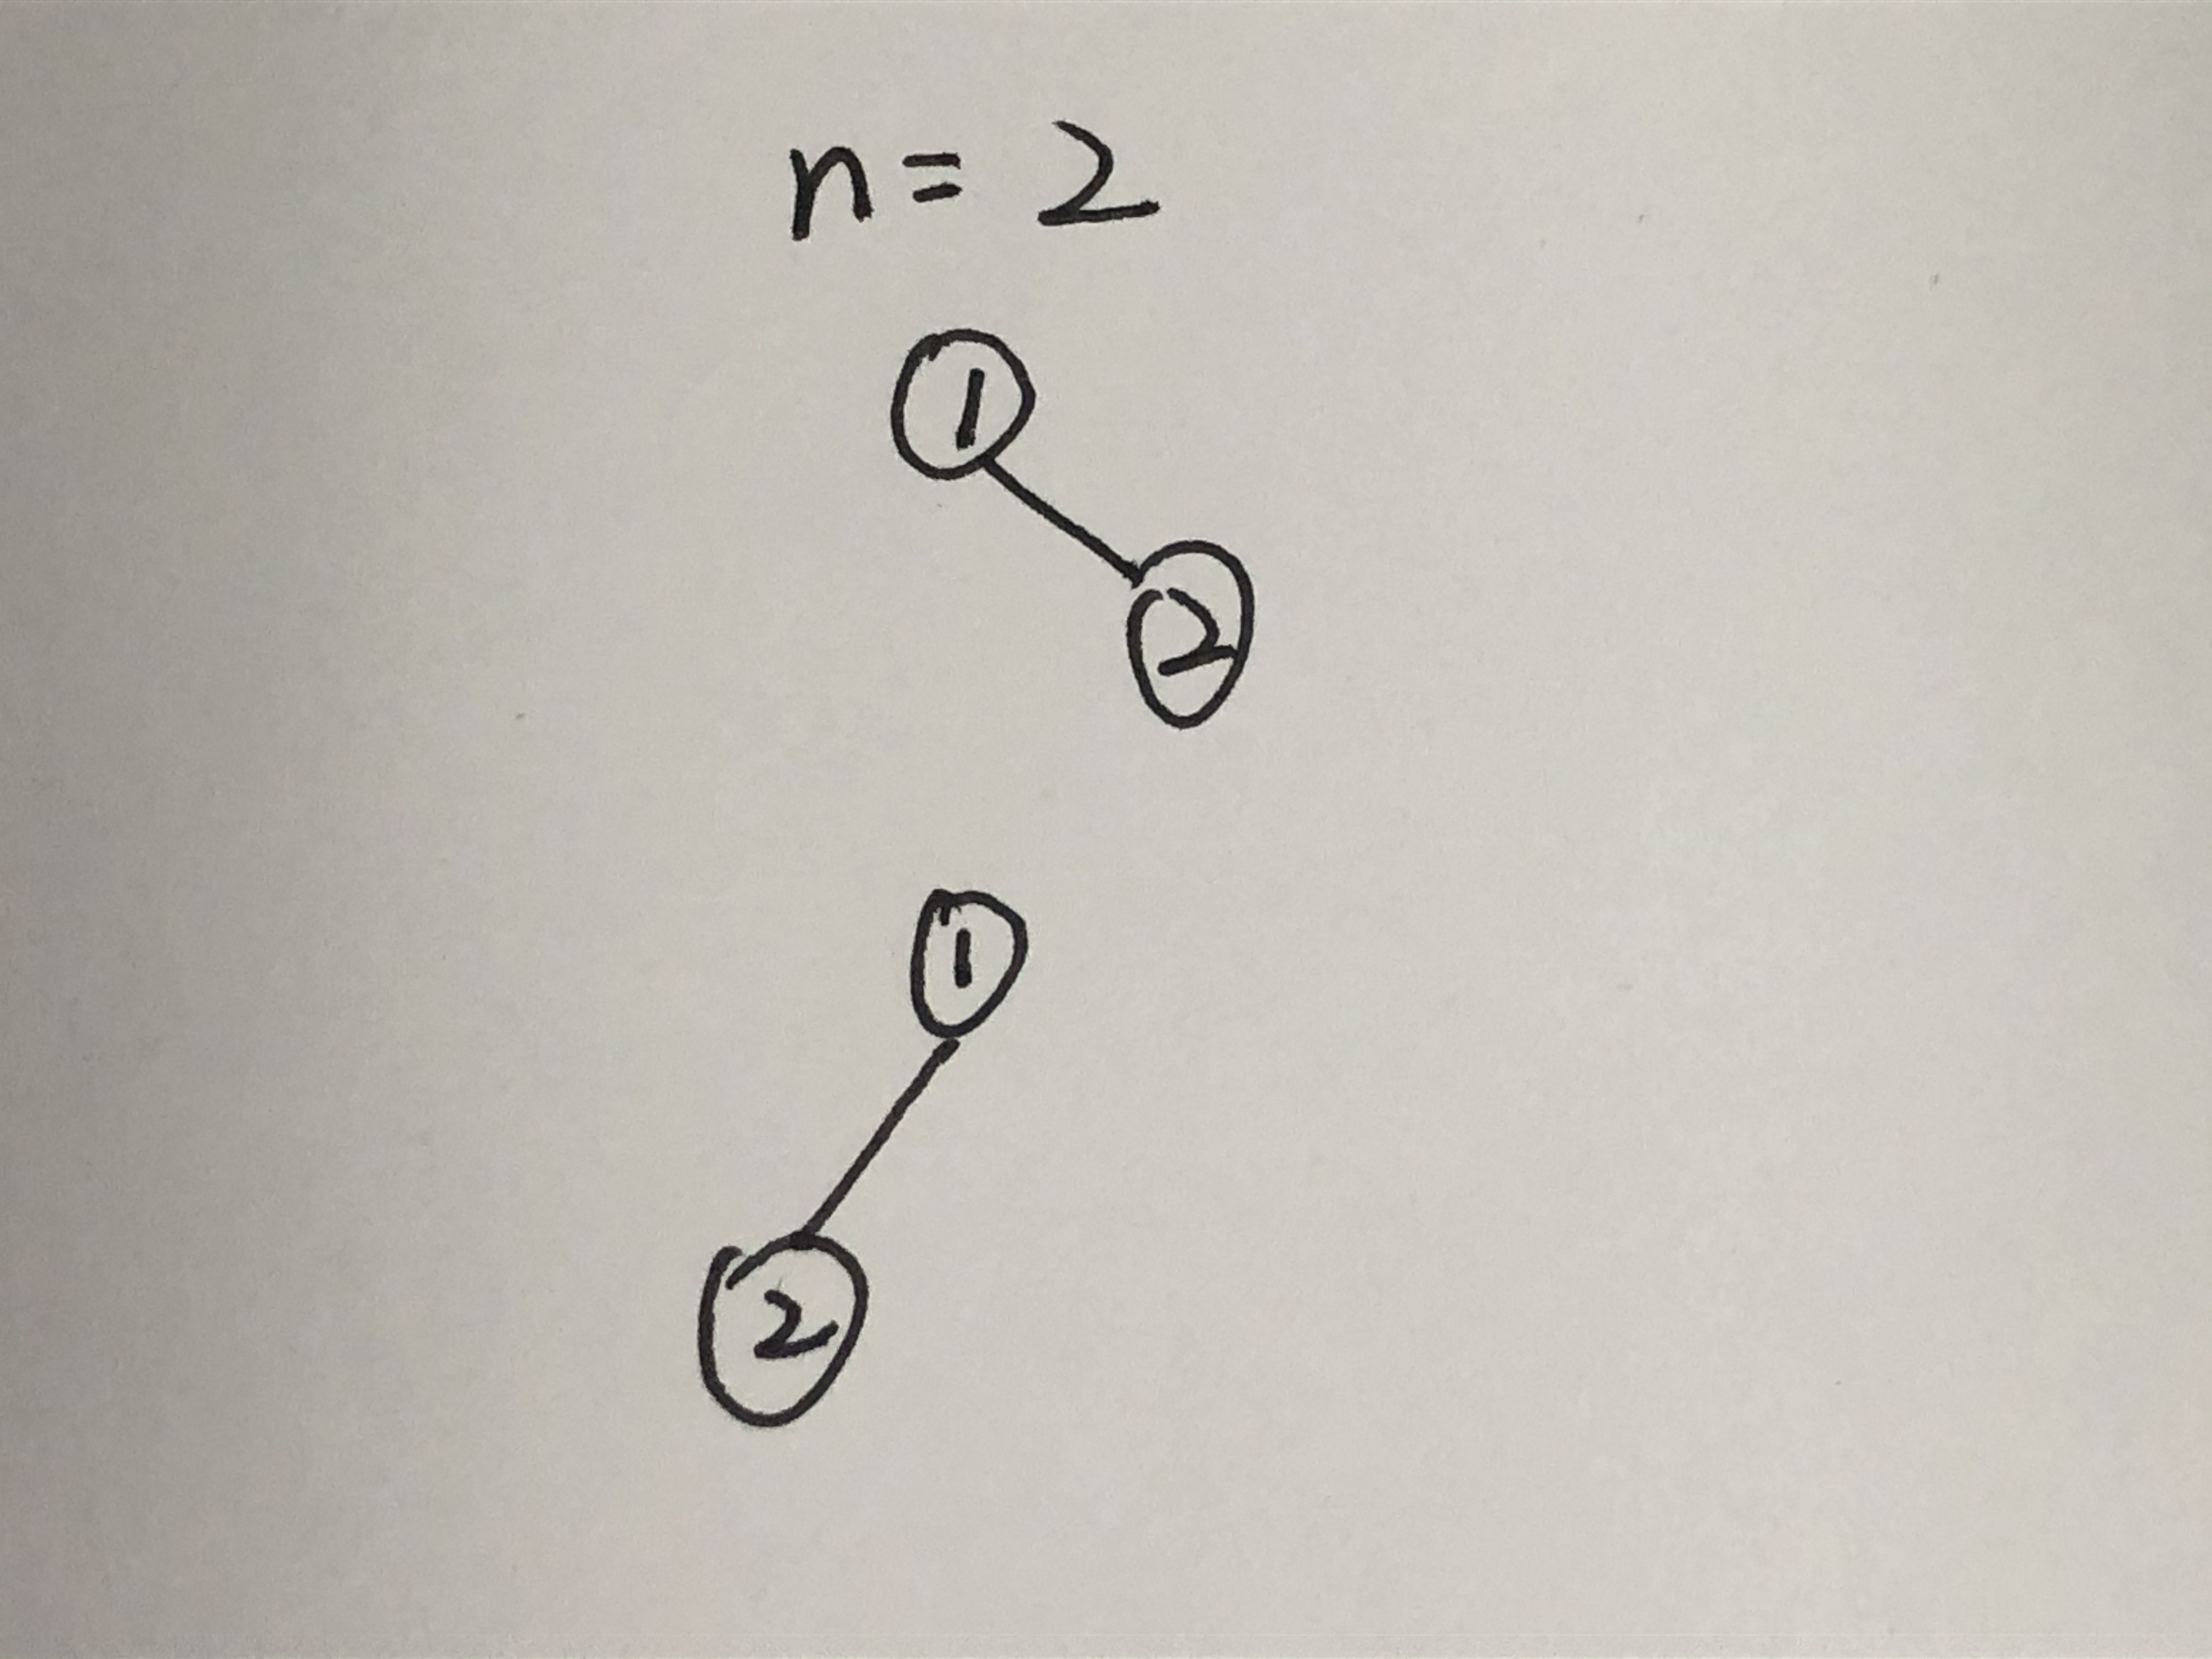 n = 2
1
2
1
2